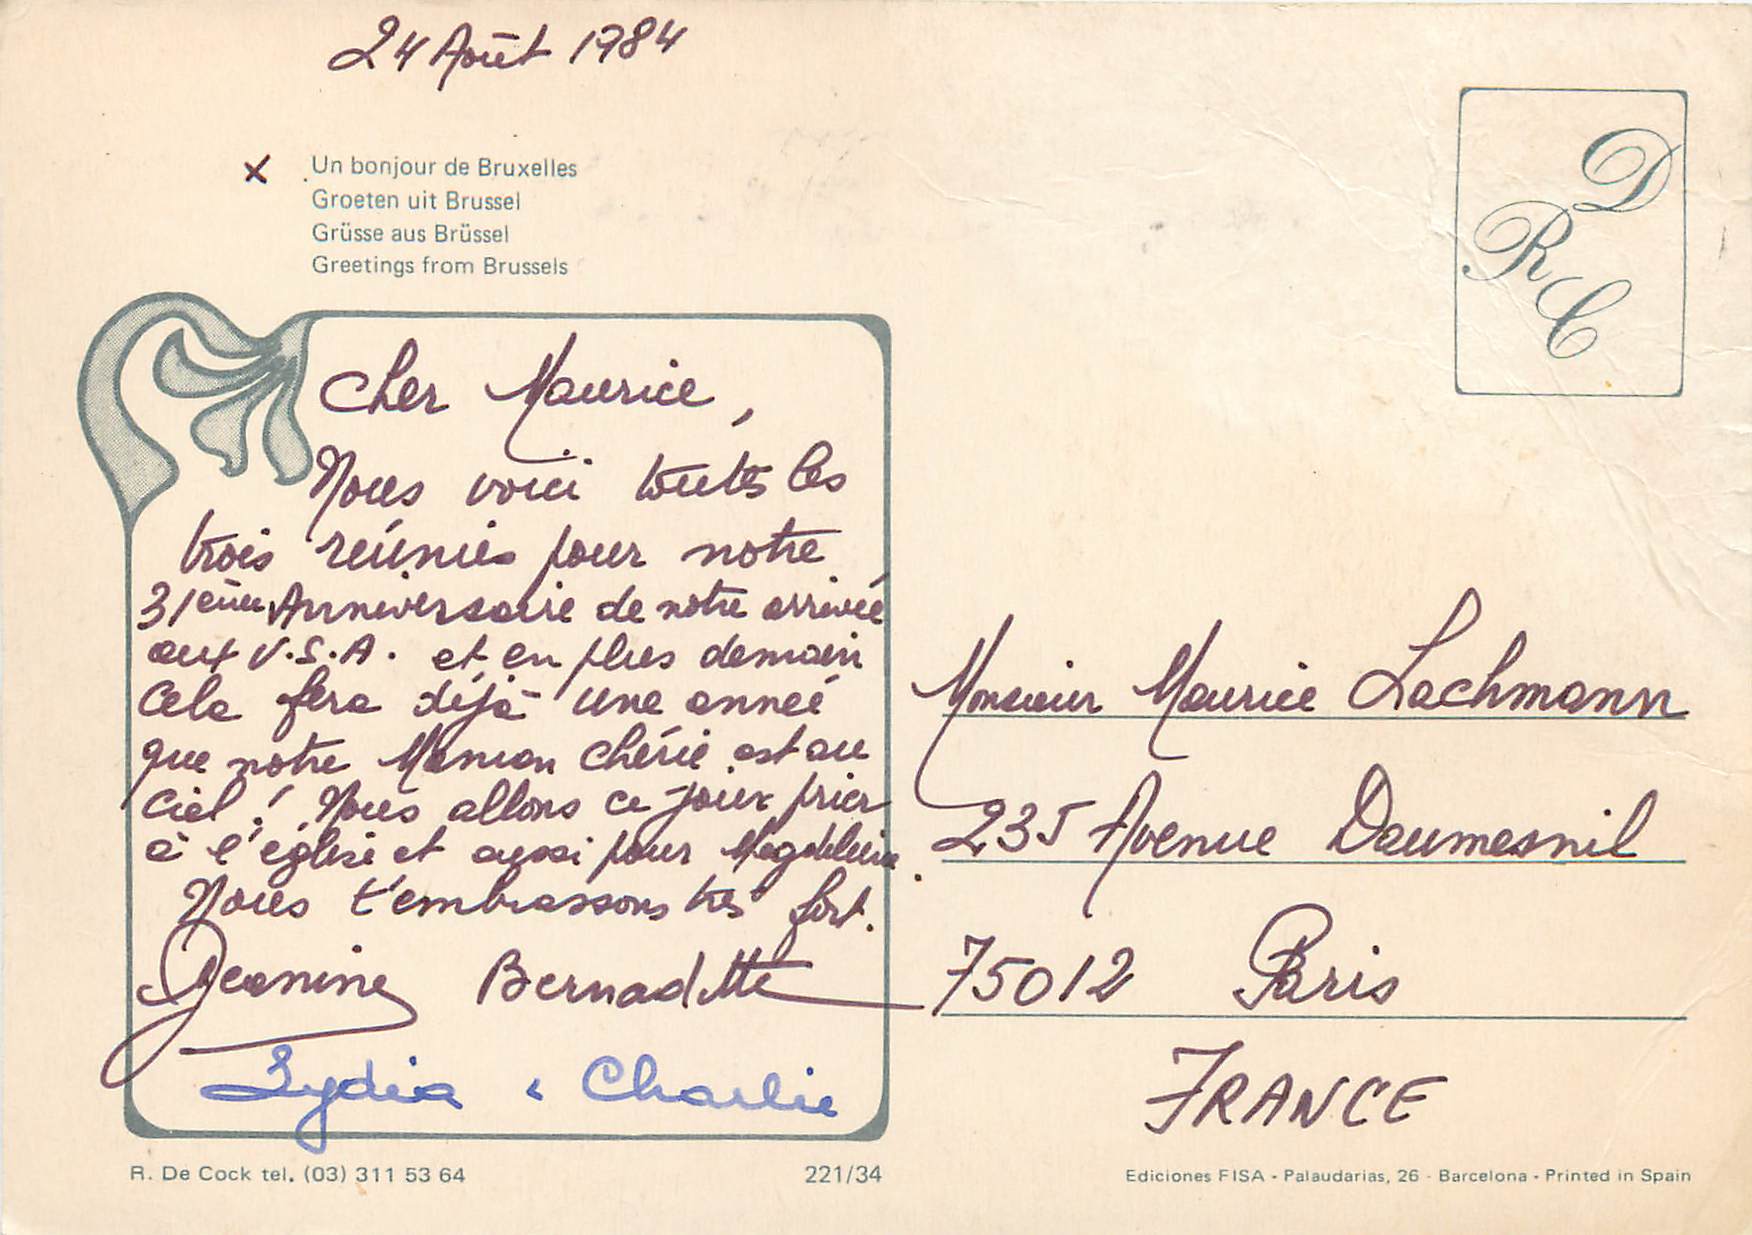 24 Août 1984
x Un bonjour de Bruxelles
Groeten uit Brussel
Grüsse aus Brüssel
Greetings from Brussels
DRC
Cher Maurice,
Nous voici toutes les
trois réunies pour notre
31ème Anniversaire de notre arrivée
aux U.S.A. et en plus demain
cela fera déjà une année
que notre Maman chérie est au
ciel! Nous allons ce jour prier
à l'église et aussi pour Magdeleine.
Nous t'embrassons très fort.
Jeanine Bernadette
Lydia & Charlie
Monsieur Maurice Lachmann
235 Avenue Daumesnil
75012 Paris
FRANCE
R. De Cock tel. (03) 311 53 64
221/34
Ediciones FISA - Palaudarias, 26 - Barcelona - Printed in Spain